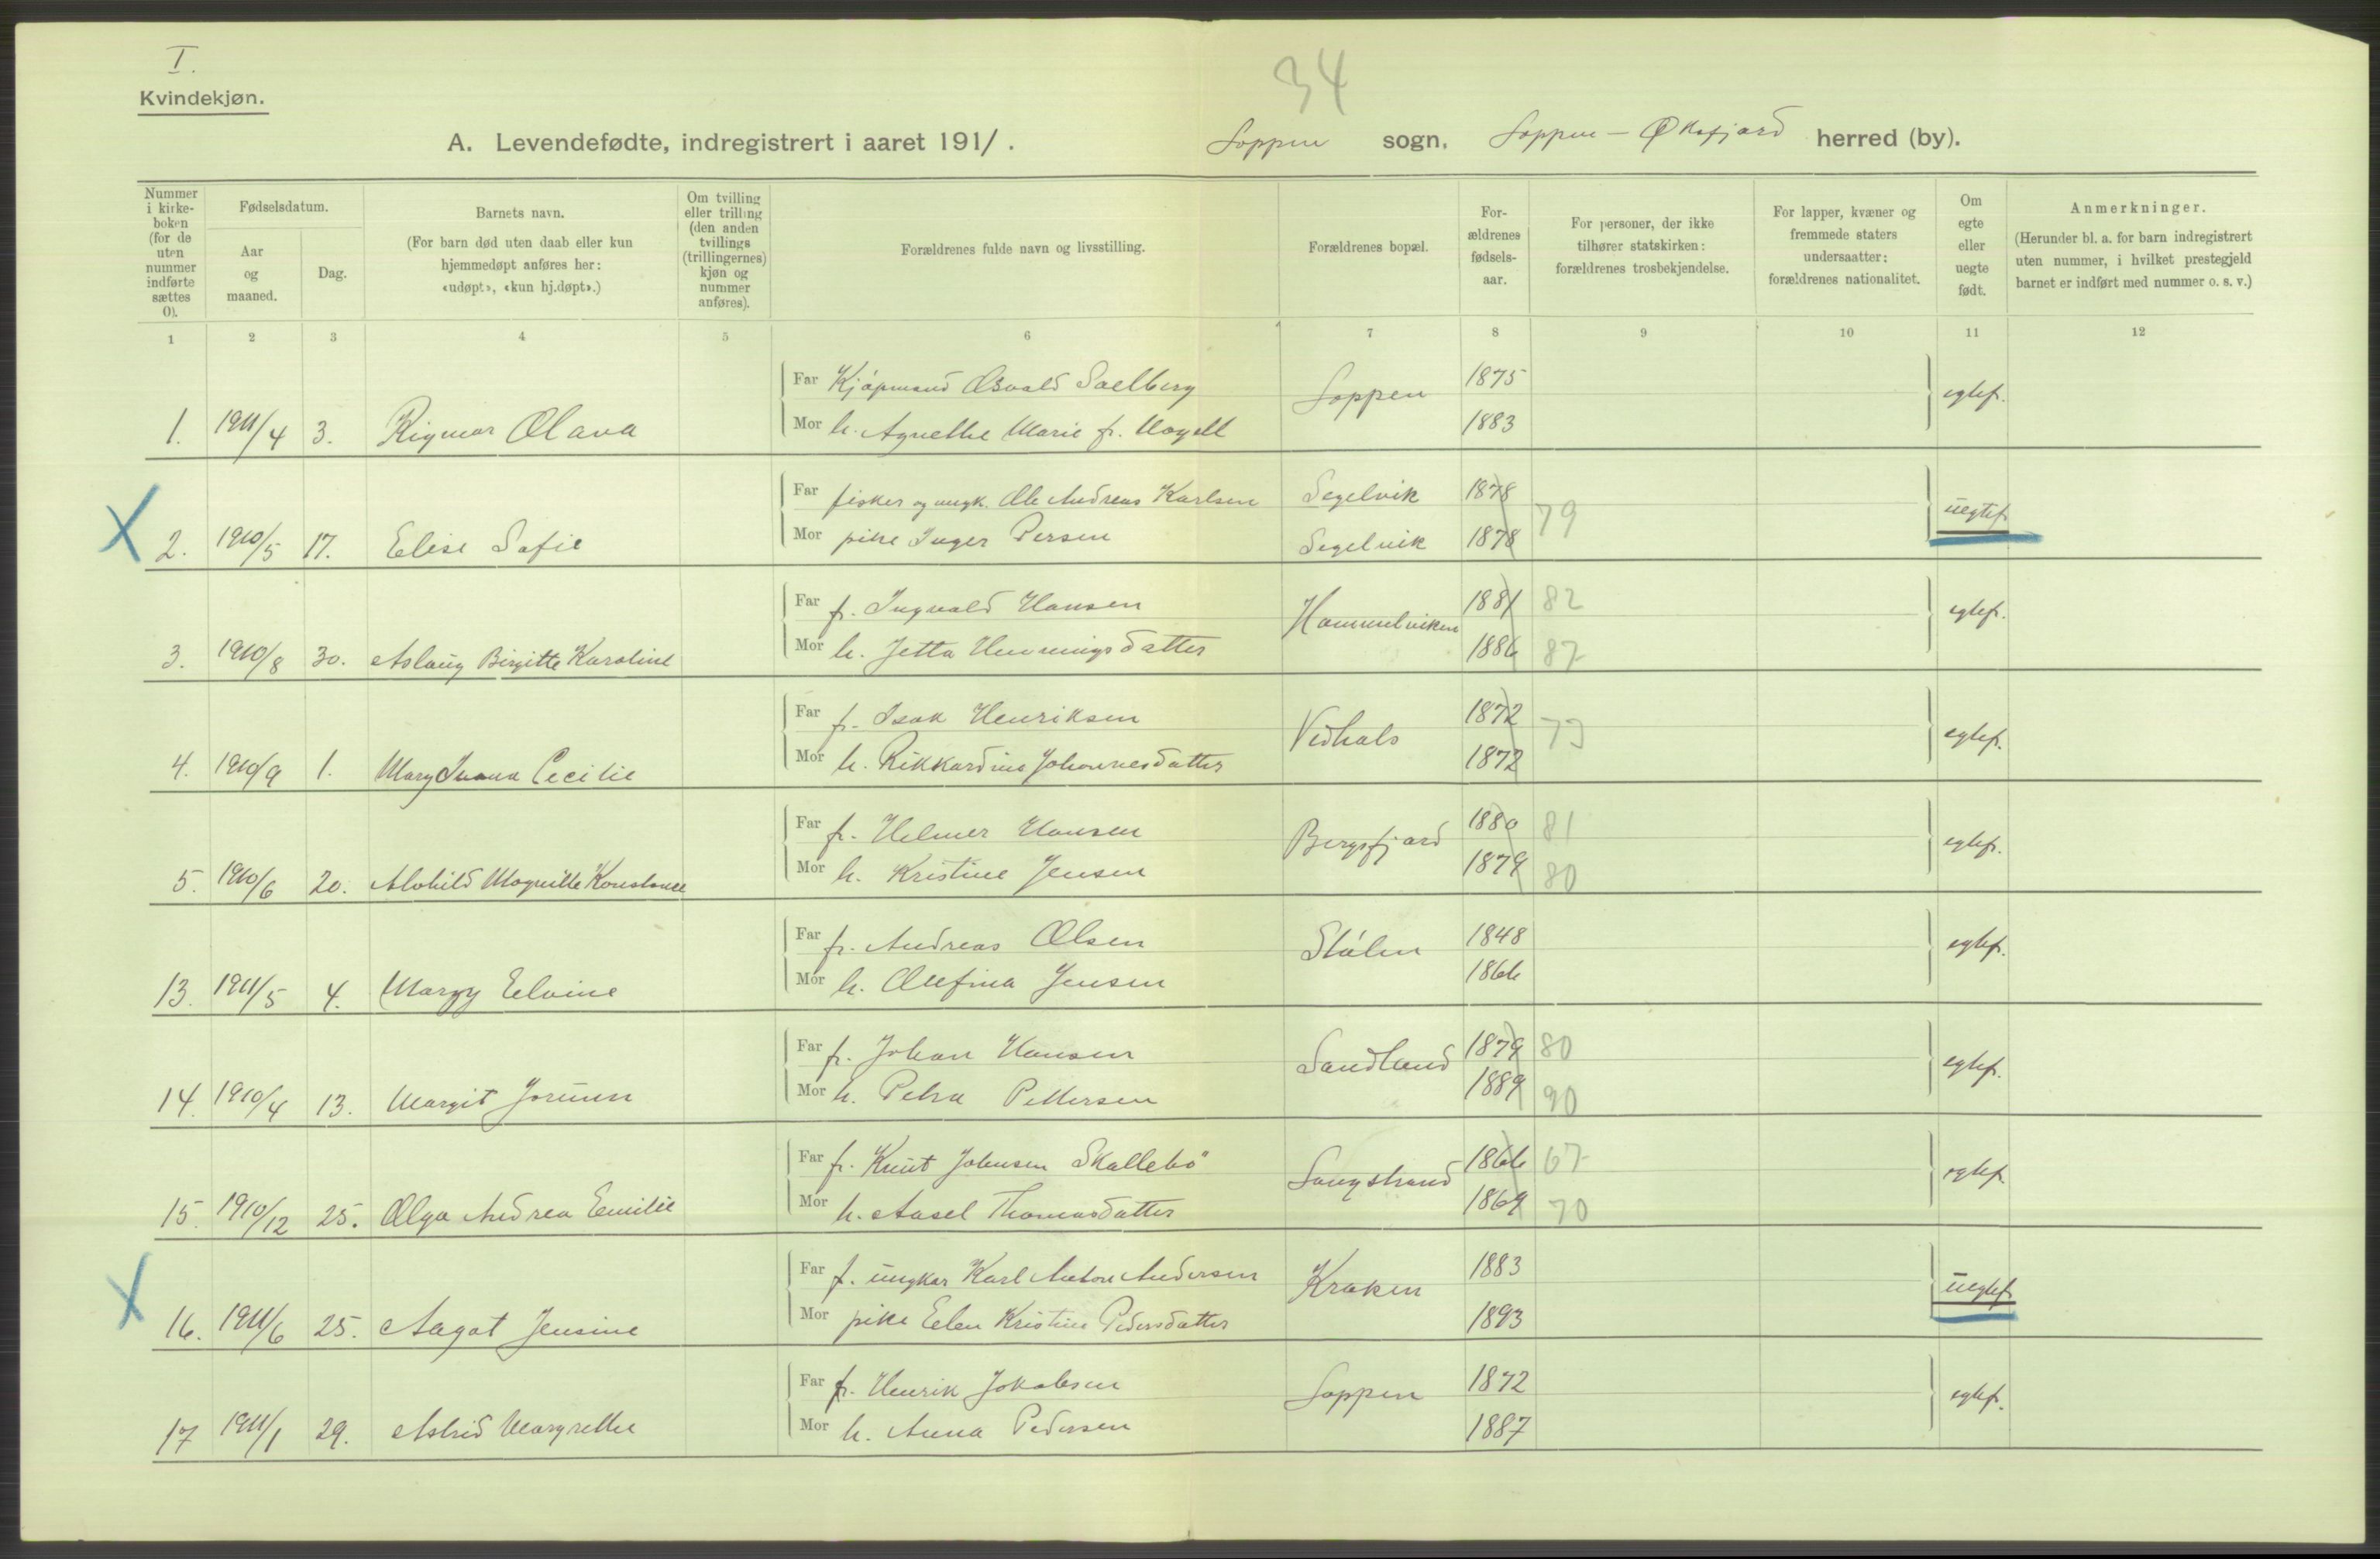 I.
34
Kvindekjøn.
A. Levendefødte, indregistrert i aaret 1911. Loppen sogn, Loppen - Øksfjord herred (by).
Nummer i kirke-boken (for de uten nummer indførte sættes 0).
Fødselsdatum.
Aar og maaned.
Dag.
Barnets navn. (For barn død uten daab eller kun hjemmedøpt anføres her: «udøpt», «kun hj.døpt».)
Om tvilling eller trilling (den anden tvillings (trillingernes) kjøn og nummer anføres).
Forældrenes fulde navn og livsstilling.
Forældrenes bopæl.
For-ældrenes fødsels-aar.
For personer, der ikke tilhører statskirken: forældrenes trosbekjendelse.
For lapper, kvæner og fremmede staters undersaatter: forældrenes nationalitet.
Om egte eller uegte født.
Anmerkninger. (Herunder bl. a. for barn indregistrert uten nummer, i hvilket prestegjeld barnet er indført med nummer o. s. v.)
1 2 3 4 5 6 7 8 9 10 11 12
Far Kjøpmand Osvald Solberg Loppen 1875 egtef.
1. 1911/4 3. Rigmor Olava Mor h. Agnethe Marie f. 1883
Far fisker og ungk. Ole Andreas Karlsen Segelvik 1878 79 uegtef
X 2. 1910/5 17. Elise Sofie Mor pike Inger Persen Segelvik 1878
Far f. Ingvald Hansen Hammelviken 1881 82 egtef.
3. 1910/8 30. Aslaug Birgitte Karoline Mor h. Jetta Henningsdatter 1886 87
Far f. Isak Henriksen Vidhals 1872 73 egtef.
4. 1910/9 1. Mary Cecilie Mor h. Rikkardine Johannesdatter 1872
Far f. Helmer Hansen Bergsfjord 1880 81 egtef.
5. 1910/6 20. Alvhild Magnille Konstance Mor h. Kristine Jensen 1879 80
Far f. Andreas Olsen Stålen 1848 egtef.
13. 1911/5 4. Margy Elvine Mor h. Olefina Jensen 1866
Far f. Johan Hansen Sandland 1879 80 egtef.
14. 1910/4 13. Margit Jorunn Mor h. Petra Pettersen 1889 90
Far f. Knut Johnsen Skallebö Langstrand 1866 67 egtef.
15. 1910/12 25. Olga Andrea Emilie Mor h. Aasel Thomasdatter 1869 70
Far f. ungkar Karl Anton Andersen Kraken 1883 uegtef
X 16. 1911/6 25. Aagot Jensine Mor pike Elen Kristine Pedersdatter 1893
Far f. Henrik Jakobsen Loppen 1872 egtef.
17 1911/1 29. Astrid Margrethe Mor h. Anna Pedersen 1887